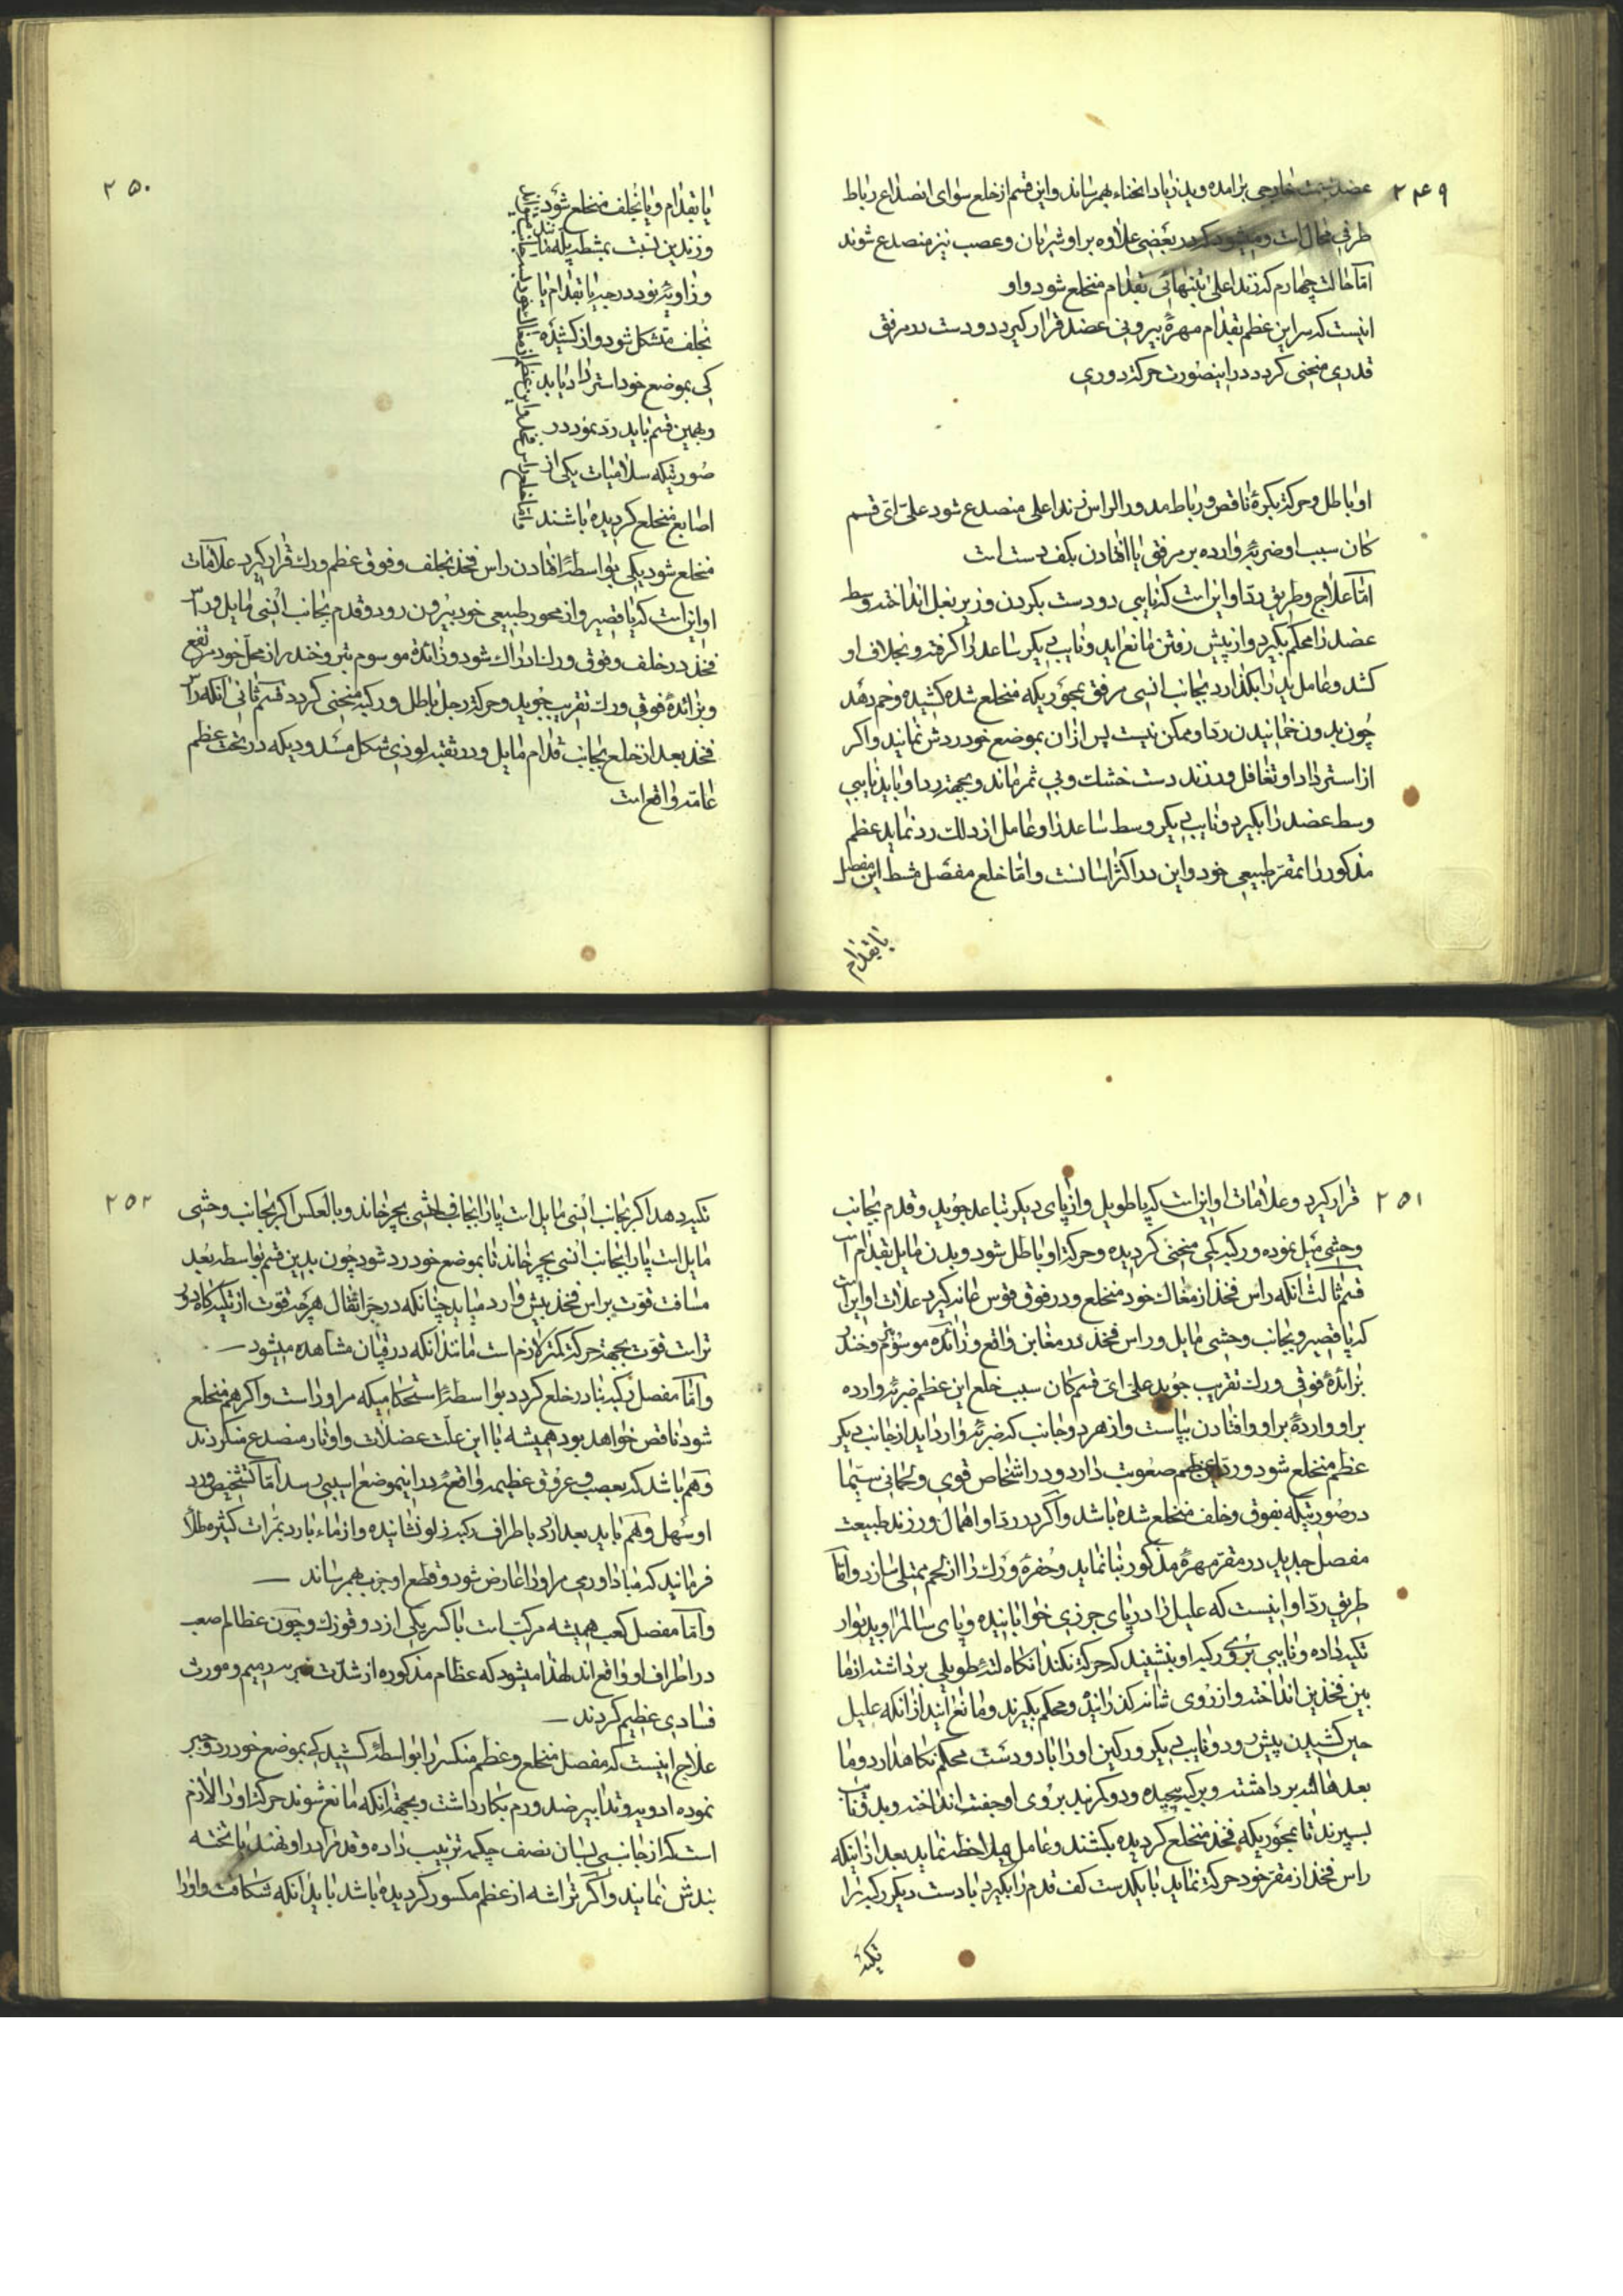 ۲۴۹
عضد بسمت خارجی برامده و ید زیاد انحناء بهمرساند و این قسم از خلع سوای انصداع رباط
طرفی محال است و میشود که در بعضی علاوه براو شریان و عصب نیز منصدع شوند
امّا حالت چهارم که زند اعلی بتنهائی بقدام منخلع شود و او
اینست که سر این عظم بقدام مهرهٔ بیرونی عضد قرار گیرد و دست در مرفق
قدری منحنی کردد در اینصورت حرکة دوری
او باطل و حرکة بکرهٔ ناقص و رباط مدور الراس زند اعلی منصدع شود علی ای قسم
کان سبب او ضربهٔ وارده بر مرفق یا افتادن بکف دست است
امّا علاج و طریق ردّ او این است که نایبی دو دست بکردن و زیر بغل انداخته وسط
عضد را محکم بکیرد و از پیش رفتن مانع اید و نایب دیکر ساعد را کرفته و بخلاف او
کشد و عامل ید را بکذارد بجانب انسی مرفق بمجوریکه منخلع شده کشیده و خم دهد
چون بدون خمانیدن ردّ او ممکن نیست پس از ان بموضع خود ردش نمایند و اکر
از استرداد او تغافل ورزند دست خشک و بی ثمر ماند و بجهة ردّ او باید نایبی
وسط عضد را بکیرد و نایب دیکر وسط ساعد را و عامل از دلک رد نماید عظم
مذکور را بمقرّ طبیعی خود و این در اکثر اسانست و امّا خلع مفصل مشط این مفصل
بابقدام
۲۵۰
یا بقدام و یا بخلف منخلع شود
و زندین نسبت بمشط
و زاویهٔ بود در جبر یا بقدام یا
بخلف متشکل شود و از کشیده
کی بموضع خود استرداد یابد
و بهمین قسم باید ردّ نمود در
صورتیکه سلامیات یکی از
اصابع منخلع کردیده باشند
منخلع شود یکی بواسطهٔ افتادن راس فخذ بخلف و فوق عظم ورک قرار کیرد علامات
او این است که پا قصیر و از محور طبیعی خود بیرون رود و قدم بجانب انسی مایل و راس
فخذ در خلف و فوق ورک ادراک شود و زائدهٔ موسوم بتروخندر از محلّ خود مرتفع
و بزائدهٔ فوقی ورک تقریب جوید و حرکة رجل باطل و رکبه منحنی کردد قسم ثانی انکه راس
فخذ بعد از خلع بجانب قدام مایل و در ثقبه لوزی شکل مسدودیکه در تحت عظم
عانه واقع است
۲۵۱
قرار کیرد و علامات او این است که پا طویل و از پای دیکر تباعد جوید و قدم بجانب
وحشی میل نموده و رکبه کمی منحنی کردیده و حرکة او باطل شود و بدن مایل بقدام است
قسم ثالث انکه راس فخذ از مغاک خود منخلع و در فوق قوس عانه کیرد علامات او این است
که پا قصیر و بجانب وحشی مایل و راس فخذ در مغابن واقع و زائده موسوم بتروخندر
بزائدهٔ فوقی ورک تقریب جوید علی ای قسم کان سبب خلع این عظم ضربهٔ وارده
براو و واردهٔ براو و افتادن بپاست و از هر دو جانب که ضربهٔ وارد اید از جانب دیکر
عظم منخلع شود و ردّ این عظم صعوبت دارد و در اشخاص قوی و لحمانی سیّما
در صورتیکه بفوق و خلف منخلع شده باشد و اکر در ردّ او اهمال ورزند طبیعت
مفصل جدید در مقرّ مهرهٔ مذکور بنا نماید و حفرهٔ ورک را از لحم ممتلی سازد و امّا
طریق ردّ او اینست که علیل را در پای جرزی خوابانیده و پای سالم را بدیوار
تکیه داده و نایبی بر روی رکبه او بنشیند که حرکة نکند انکاه لتهٔ طویلی برداشته از ما
بین فخذین انداخته و از روی شانه کذرانیده و محکم بکیرند و مانع ایند از انکه علیل
حین کشیدن پیش رود و نایب دیکر ورکین او را با دو دست محکم نکاهدارد و ما
بعد هاله برداشته و برکبه پیچیده و دو کره بد بروی او جفت انداخته و بدو نایب
بسپرند تا بمجوریکه فخذ منخلع کردیده بکشند و عامل ملاحظه نماید بعد از اینکه
راس فخذ از مقرّ خود حرکة نماید با یکدست کف قدم را بکیرد با دست دیکر رکبه را
تکیه
۲۵۲
تکیه دهد اکر بجانب انسی مایل است پا را بجانب وحشی بچرخاند و بالعکس اکر بجانب وحشی
مایل است پا را بجانب انسی بچرخاند تا بموضع خود رد شود چون بدین قسم بواسطه بُعد
مسافت قوّت براس فخذ بیش وارد میاید چنانکه در جرّ اثقال هر چه قوّت از تکیه کاه دور
تر است قوّت بجهة حرکة کمتر لازم است مانند انکه در قپان مشاهده میشود
و امّا مفصل رکبه بنادر خلع کردد بواسطهٔ استحکامیکه مر او را است و اکر هم منخلع
شود ناقص خواهد بود همیشه با این علت عضلات و اوتار منصدع میکردند
و هم باشد که بعصب و عروق عظیمه واقعهٔ در اینموضع اسیبی رسد امّا تشخیص و رد
او سهل و هم باید بعد از رد باطراف رکبه زلو نشانیده و از ماء بارد بمرات کثیره طلا
فرمایند که مبادا ورمی مر او را عارض شود و قطع او جزب بهمرساند
و امّا مفصل کعب همیشه مرکّب است با کسر یکی از دو قوزک و چون عظام صعب
در اطراف او واقع اند لهذا میشود که عظام مذکوره از شدّت ضربه رمیم و مورث
فسادی عظیم کردند
علاج اینست که مفصل منخلع و عظم منکسر را بواسطهٔ کشیدکی بموضع خود رد و جبر
نموده ادویه و تدابیر ضد ورم بکار داشت و بجهة انکه مانع شوند حرکة او را لازم
است که از جانبی بسان نصف چکمه ترتیب داده و قدم را در او نهند با تخته
بندش نمایند و اکر تراشه از عظم مکسور کردیده باشد باید انکه شکافت و او را